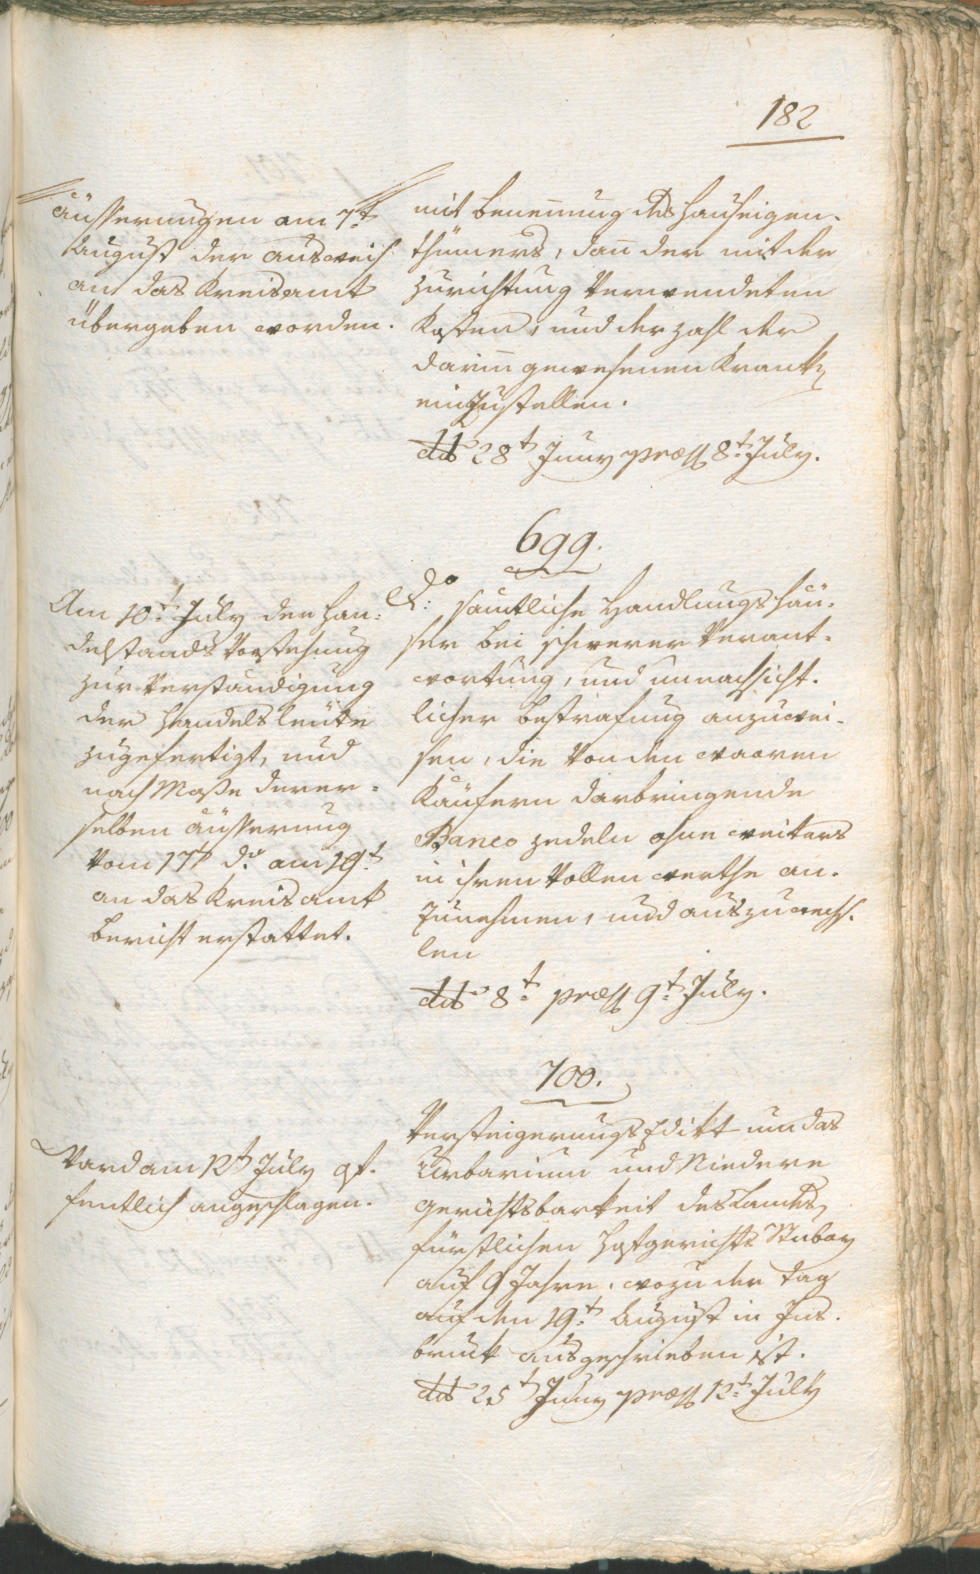 182
äusserungen am 7t
August der ausweis
an das Kreisamt
übergeben worden.
mit benennung des Hauseigen-
thümers, dan̄ der mit der
Zurichtung verwendeten
Kosten, und der zahl der
darin̄ gewesenen Krank
einzustellen.
ddo 28t Juny præs 8t July.
699.
Am 10t July der Han-
delstands Vorstehung
zur Verständigung
der Handelsleüte
zugefertigt, und
nach Maße derer-
selben äusserung
vom 17t do am 19t
an das Kreisamt
bericht erstattet.
Eo: samtliche Handlungshäu-
ser bei schwerer Verant-
wortung, und unnachsicht-
licher bestrafung anzuwei-
sen, die von den waaren
Käufern darbringende
Banco zedeln ohne weiters
in ihren vollen werthe an-
zunehmen, und auszuwechs-
len
ddo 8t præs 9t July.
700.
Ward am 12t July öf-
fentlich angeschlagen.
Versteigerungs Edikt um das
Urbarium und Niedere
gerichtsbarkeit des Landes
fürstlichen Hofgerichts Stubay
auf 9 Jahre, wozu der tag
auf den 19t August in Ins-
bruck ausgeschrieben ist.
ddo 25t Juny præs 12t July